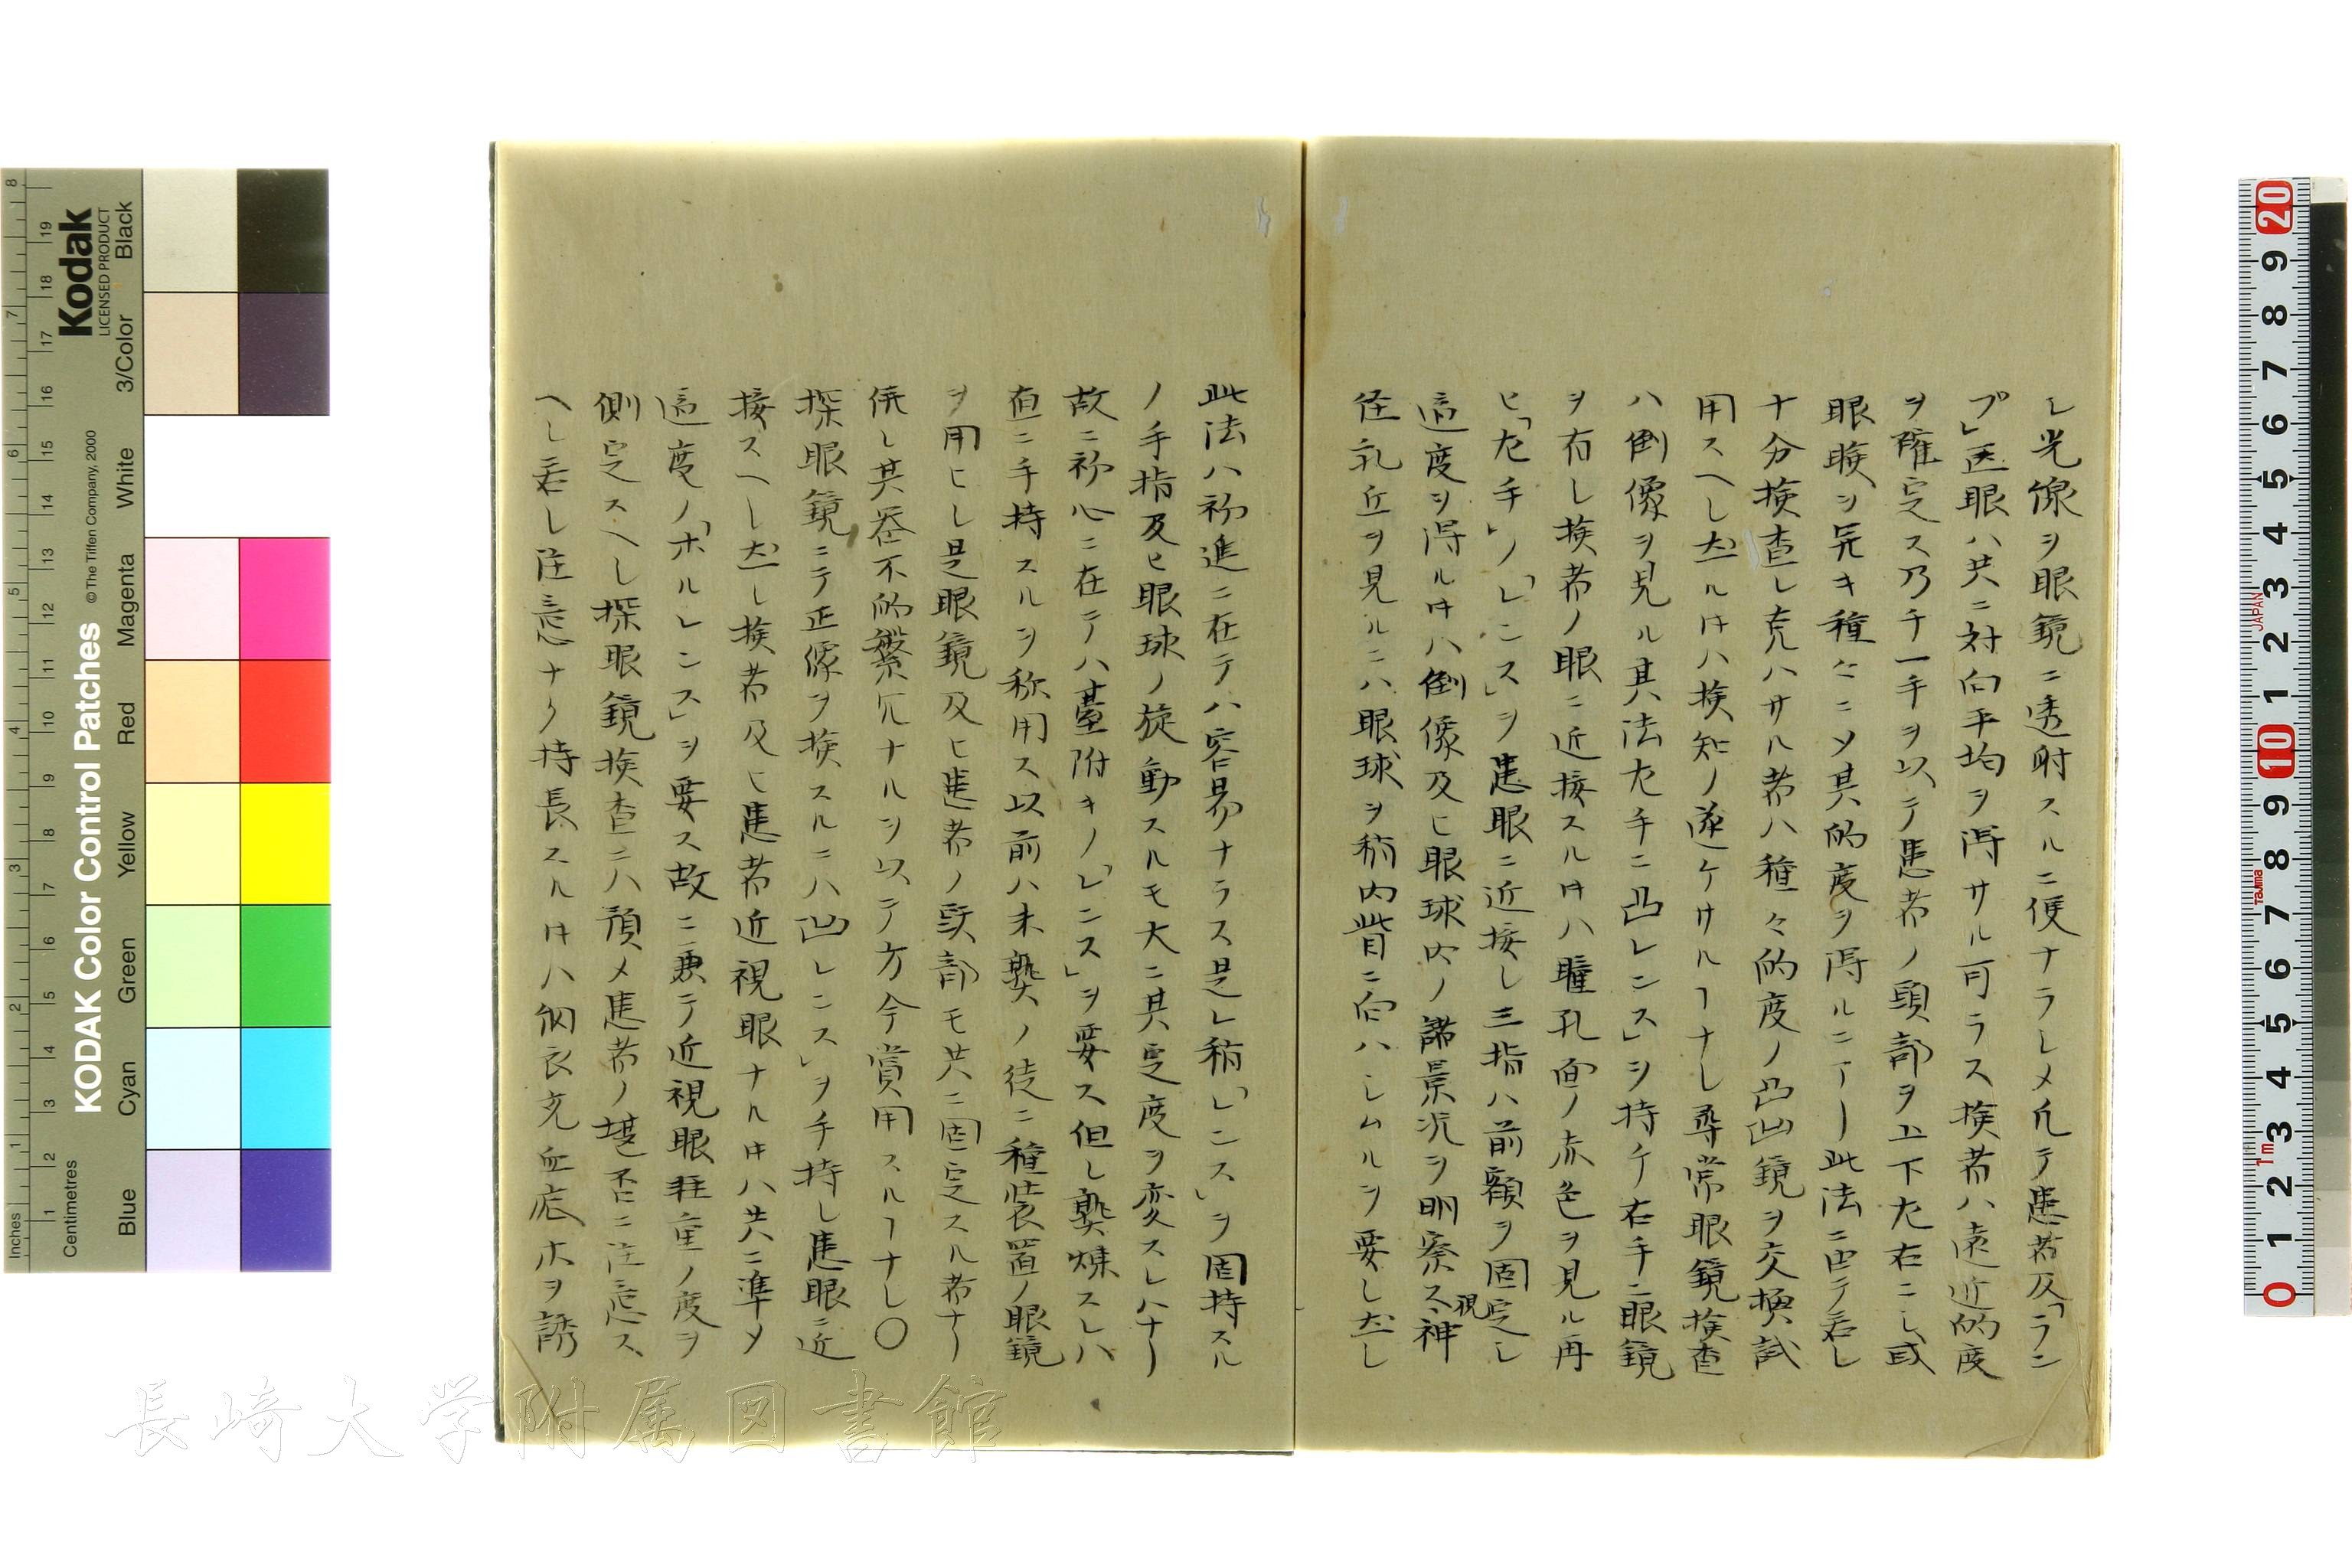 レ光線ヲ眼鏡ニ透射スルニ便ナラシメ凡テ患者及「ラン
プ」医眼ハ共ニ対向平均ヲ得サル可ラス検者ハ遠近的度
ヲ確定ス乃チ一手ヲ以テ患者ノ頭部ヲ上下左右ニシ或
眼瞼ヲ異キ種々ニシテ其的度ヲ得ルニアリ此法ニ由テ若シ
十分検査シ克ハサル者ハ種々的度ノ凸凹鏡ヲ交換試
用スヘシ左ルキハ検知ノ遂ケサルヿナシ尋常眼鏡検査
ハ倒像ヲ見ル其法左手ニ凸レンス」ヲ持チ右手ニ眼鏡
ヲ右シ検者ノ眼ニ近接スルキハ瞳孔面ノ赤色ヲ見ル再
ヒ「左手」ノ「レンス」ヲ患眼ニ近接シ三指ハ前額ヲ固定シ
適度ヲ得ルキハ倒像及ヒ眼球内ノ諸景況ヲ明察ス視神
径乳丘ヲ見ルニハ眼球ヲ稍内眥ニ向ハシムルヲ要シ左シ
此法ハ初進ニ在テハ容易ナラス是レ稍「レンス」ヲ固持スル
ノ手指及ヒ眼球ノ旋動スルモ大ニ其定度ヲ変スレハナリ
故ニ初心ニ在テハ臺附キノ「レンス」ヲ要ス但シ熟煉スレハ
直ニ手持スルヲ称用ス以前ハ未熟ノ徒ニ種装置ノ眼鏡
ヲ用ヒシ是眼鏡及ヒ患者ノ頭部モ共ニ固定スル者ナリ
併シ其器不的繁冗ナルヲ以テ方今賞用スルヿナシ〇
探眼鏡ニテ正像ヲ検スルニハ凹レンス」ヲ手持シ患眼ニ近
接スヘシ左シ検者及ヒ患者近視眼ナルキハ共ニ準メ
適度ノ「ホルレンス」ヲ要ス故ニ兼テ近視眼軽重ノ度ヲ
側定スヘシ探眼鏡検査ニハ預メ患者ノ堪否ニ注意ス
ヘシ若シ注意ナク持長スルキハ網衣充血底ホヲ誘
Kodak
LICENSED PRODUCT
KODAK Color Control Patches
© The Tiffen Company, 2000
Inches
Centimetres
Blue
Cyan
Green
Yellow
Magenta
Red
White
3/Color
Black
長崎大学附属図書館